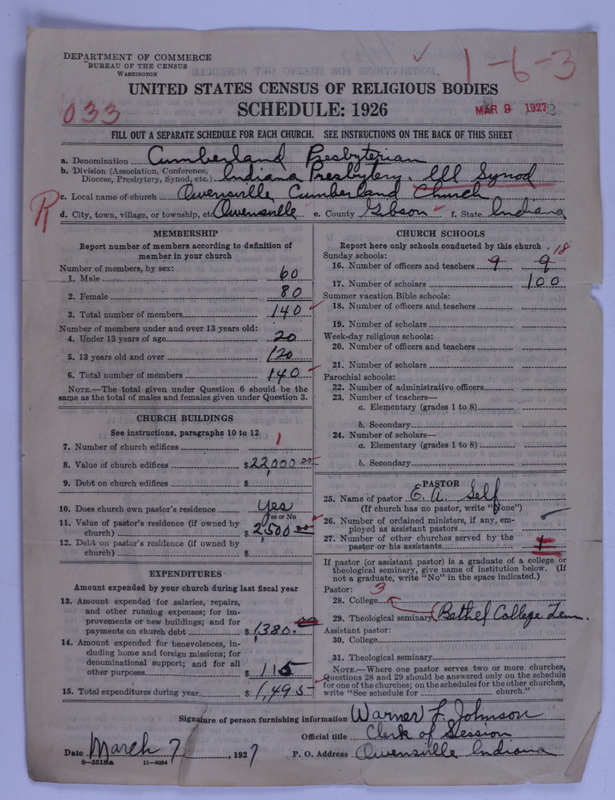 DEPARTMENT OF COMMERCE
BUREAU OF THE CENSUS
WASHINGTON
1-6-3
UNITED STATES CENSUS OF RELIGIOUS BODIES
033
SCHEDULE: 1926
MAR 9 1927
FILL OUT A SEPARATE SCHEDULE FOR EACH CHURCH. SEE INSTRUCTIONS ON THE BACK OF THIS SHEET
a. Denomination Cumberland Presbyterian
b. Division (Association, Conference, Diocese, Presbytery, Synod, etc.) Indiana Presbytery. Ill Synod
R
c. Local name of church Owensville Cumberland Church
d. City, town, village, or township, etc. Owensville e. County Gibson f. State Indiana
MEMBERSHIP
Report number of members according to definition of
member in your church
Number of members, by sex:
1. Male 60
2. Female 80
3. Total number of members 140
Number of members under and over 13 years old:
4. Under 13 years of age 20
5. 13 years old and over 120
6. Total number of members 140
NOTE.—The total given under Question 6 should be
same as the total of males and females given under Question 3.
CHURCH BUILDINGS
See instructions, paragraphs 10 to 12
7. Number of church edifices 1
8. Value of church edifices $22,000.00
9. Debt on church edifices $
10. Does church own pastor's residence yes
(Yes or No)
11. Value of pastor's residence (if owned by
church) $2,500.00
12. Debt on pastor's residence (if owned by
church) $
EXPENDITURES
Amount expended by church during last fiscal year
13. Amount expended for salaries, repairs,
and other running expenses; for im-
provements or new buildings; and for
payments on church debt $1,380.
14. Amount expended for benevolences, in-
cluding home and foreign missions; for
denominational support; and for all
other purposes $115
15. Total expenditures during year $1,495
CHURCH SCHOOLS
Report here only schools conducted by this church
Sunday schools: 18
16. Number of officers and teachers 9 9
17. Number of scholars 100
Summer vacation Bible schools:
18. Number of officers and teachers
19. Number of scholars
Week-day religious schools:
20. Number of officers and teachers
21. Number of scholars
Parochial schools:
22. Number of administrative officers
23. Number of teachers—
a. Elementary (grades 1 to 8)
b. Secondary
24. Number of scholars—
a. Elementary (grades 1 to 8)
b. Secondary
PASTOR
25. Name of pastor E. A. Self
(If church has no pastor, write "None")
26. Number of ordained ministers, if any, em-
ployed as assistant pastors
27. Number of other churches served by the
pastor or his assistants
If pastor (or assistant pastor) is a graduate of a college or
theological seminary, give name of institution below. (If
not a graduate, write "No" in the space indicated.)
Pastor: 3
28. College
29. Theological seminary Bethel College Tenn.
Assistant pastor:
30. College
31. Theological seminary
NOTE.—Where one pastor serves two or more churches,
Questions 28 and 29 should be answered only on the schedule
for one of the churches; on the schedules for the other churches,
write "See schedule for church."
Signature of person furnishing information Warner L. Johnson
Official title Clerk of Session
Date March 7, 1927
P. O. Address Owensville Indiana
11—9084